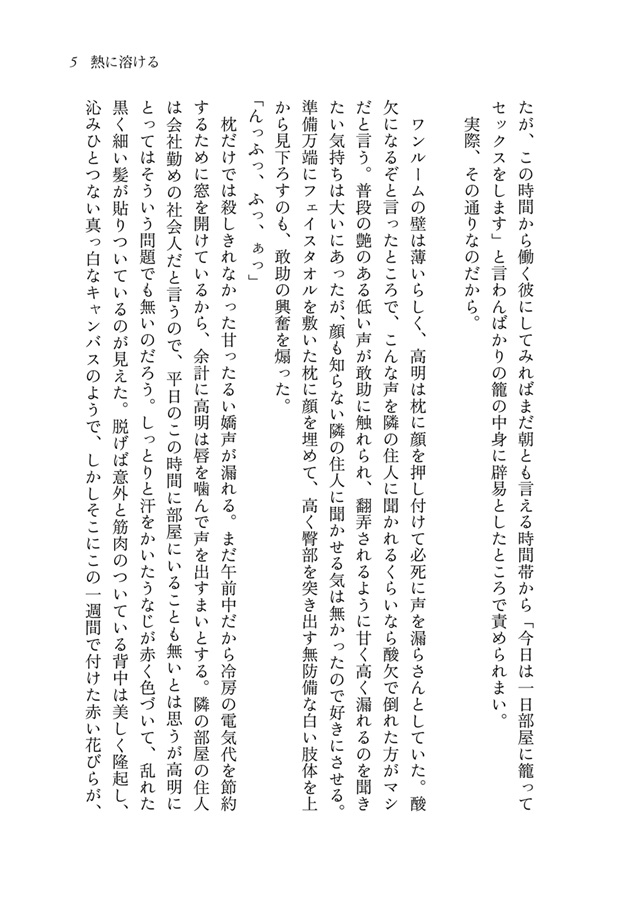 5　熱に溶ける
たが、この時間から働く彼にしてみればまだ朝とも言える時間帯から「今日は一日部屋に籠って
セックスをします」と言わんばかりの籠の中身に辟易としたところで責められまい。
　実際、その通りなのだから。
　ワンルームの壁は薄いらしく、高明は枕に顔を押し付けて必死に声を漏らさんとしていた。酸
欠になるぞと言ったところで、こんな声を隣の住人に聞かれるくらいなら酸欠で倒れた方がマシ
だと言う。普段の艶のある低い声が敢助に触れられ、翻弄されるように甘く高く漏れるのを聞き
たい気持ちは大いにあったが、顔も知らない隣の住人に聞かせる気は無かったので好きにさせる。
準備万端にフェイスタオルを敷いた枕に顔を埋めて、高く臀部を突き出す無防備な白い肢体を上
から見下ろすのも、敢助の興奮を煽った。
「んっふっ、ふっ、ぁっ」
　枕だけでは殺しきれなかった甘ったるい嬌声が漏れる。まだ午前中だから冷房の電気代を節約
するために窓を開けているから、余計に高明は唇を噛んで声を出すまいとする。隣の部屋の住人
は会社勤めの社会人だと言うので、平日のこの時間に部屋にいることも無いとは思うが高明に
とってはそういう問題でも無いのだろう。しっとりと汗をかいたうなじが赤く色づいて、乱れた
黒く細い髪が貼りついているのが見えた。脱げば意外と筋肉のついている背中は美しく隆起し、
沁みひとつない真っ白なキャンバスのようで、しかしそこにこの一週間で付けた赤い花びらが、